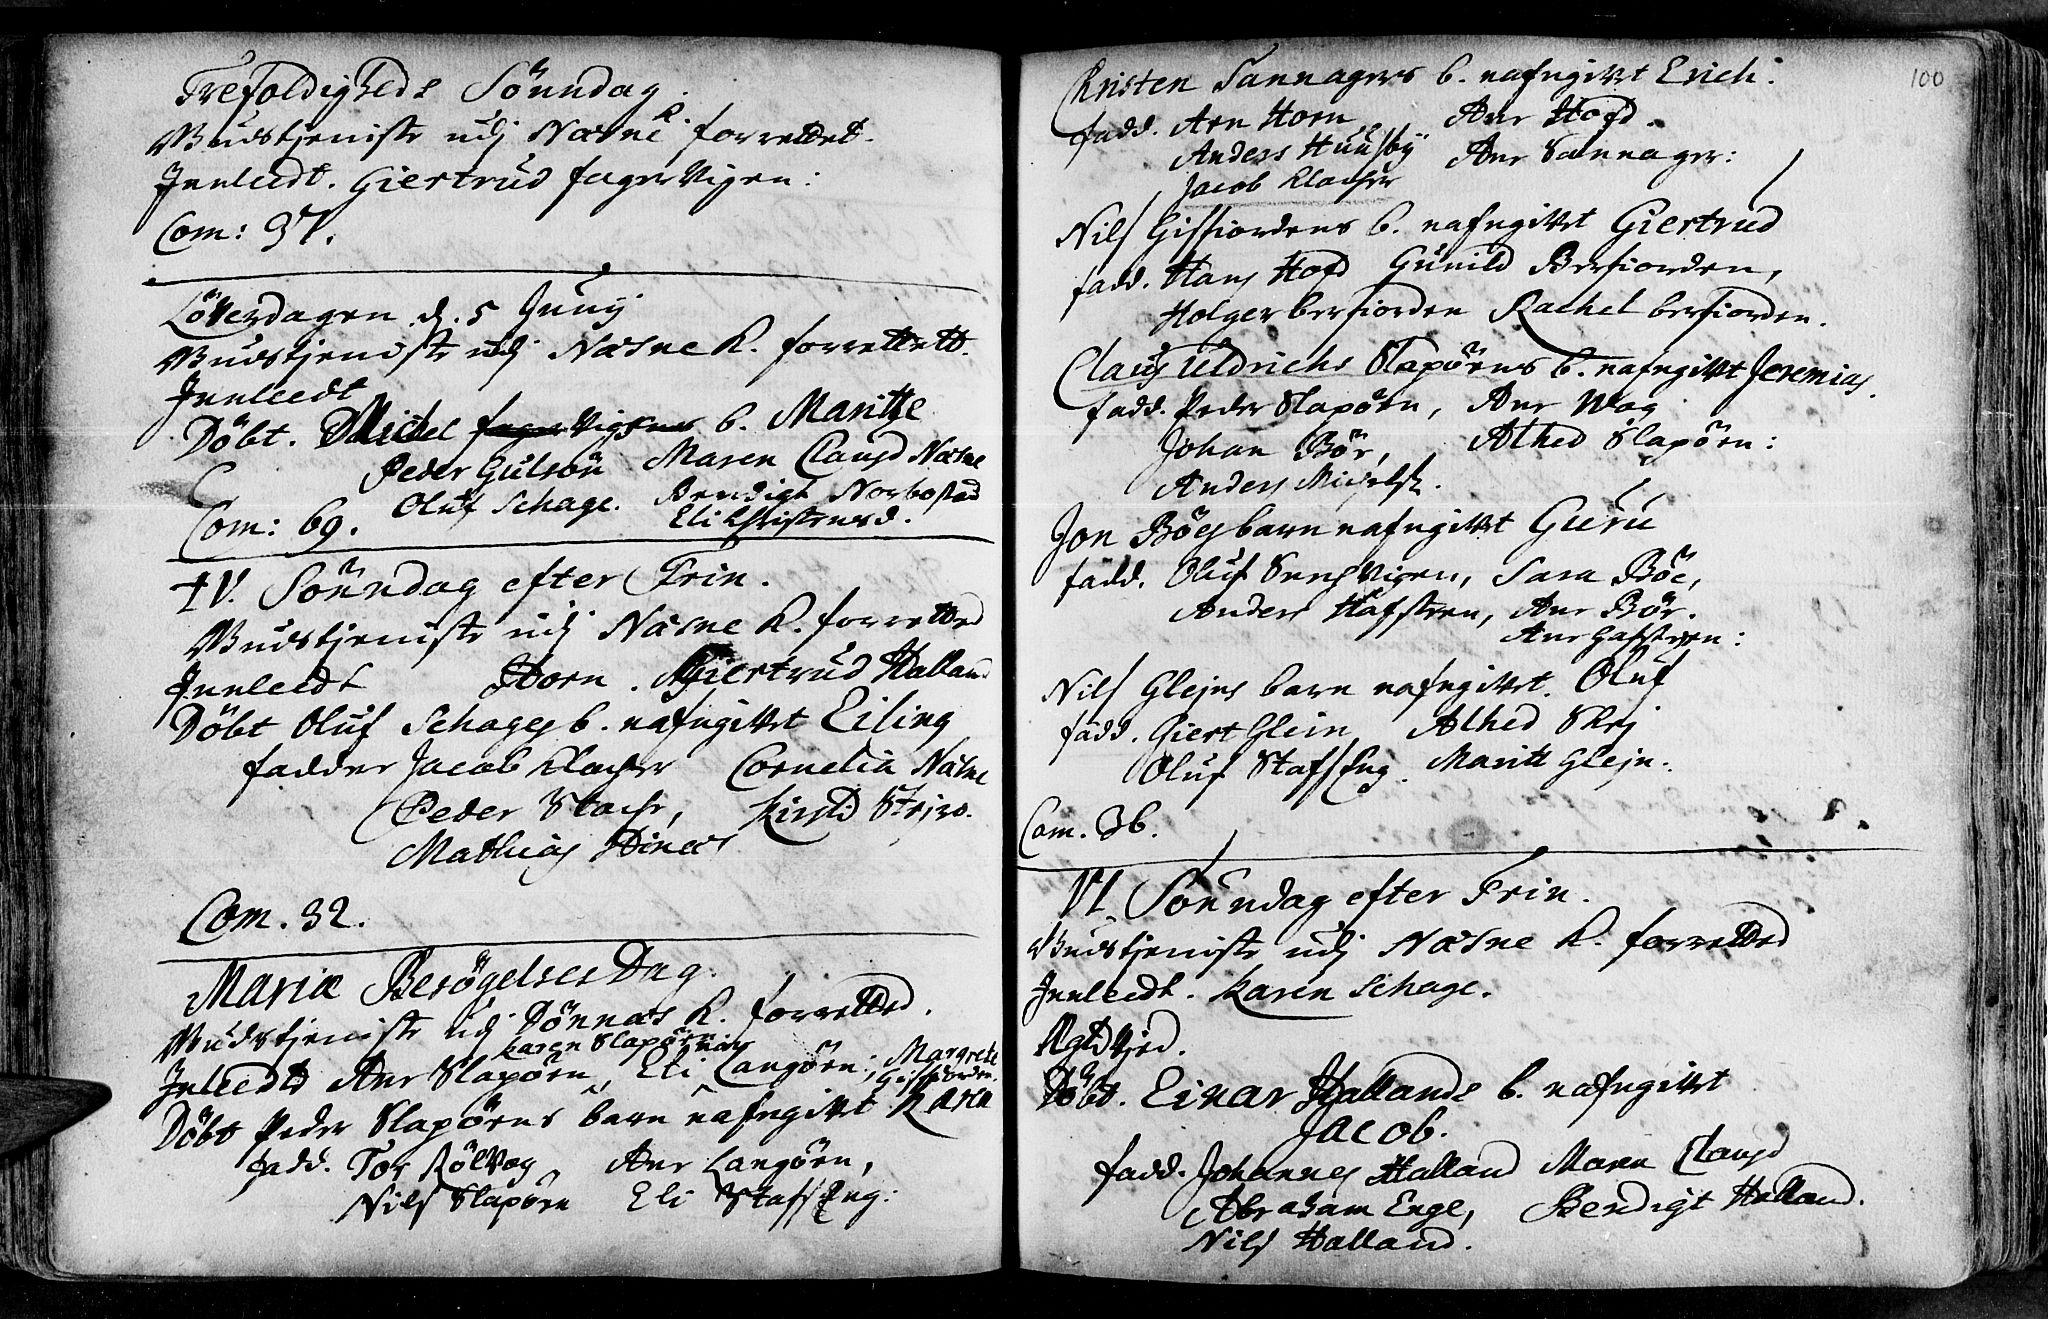 Trefoldigheds Sönndag.
Gudstjeniste udj Næsne K. forrettet.
Innleedt. Giertrud fagerVigen:
Com: 37.
Löverdagen d. 5 Junij
Gudstjeniste udj Næsne K. forrettett.
Innleedt
Döbt. Michel fagerVigens b. Maritte
Peder Gulsön Maren Clausd Næsne
Oluf Schage. Bendigt Norbostad
Com: 69. Eli Christensd.
IV. Sönndag efter Trin.
Gudstjeniste udj Næsne K. forretted
Innleedt Horn. Giertrud Halland
Döbt Oluf Schages b. nafngivet Eiling
fadder Jacob Klocher Cornelia Næsne
Peder Stochr, Kirstd
Mathias
Com. 32.
Mariæ Besögelses Dag.
Gudstjeniste udj Dönnæs K. forretted.
Karen Slapöen
Inleedt Ane Slapöen, Eli Langöen; Margrete
Döbt Peder Slapöens barn nafngivet Karen
fadd. Tor Rölvog, Ane Langöen,
Nils Slapöen Eli StafsEng:
100
Christen Sannagers b. nafngivet Erich.
fadd. Arn Horn, Ane Hofd.
Anders Huusby Ane Sannager:
Jacob Klocher
Nils Gissfiordens b. nafngivet Giertrud
fadd. Hans Hofd Gunild Berfiorden,
Holger berfiorden Rachel berfiorden.
Claus Uldrichs Slapöens b. nafngivet Jeremias.
fadd. Peder Slapöen, Ane Wog
Johan Böe, Alhed Slapöen:
Anders Michelsk.
Jon Böes barn nafngivet Guru
fadd. Oluf SensVigen, Sara Böe,
Anders Hafsteen, Ane Böe.
Ane Hafsteen:
Nils Glejns barn nafngivet. Oluf
fadd. Giert Glein Alhed Skej
Oluf StafsEng. Maritt Glejn:
Com. 36.
VI. Sönndag efter Trin.
Gudstjeniste udj Næsne K. forretted
Innleedt. Karen Schage.
Döbt. Einar Hallands b. nafngivet
Jacob.
fadd. Johannes Halland Maren Clausd
Abraham Enge, Bendigt Halland.
Nils Halland.